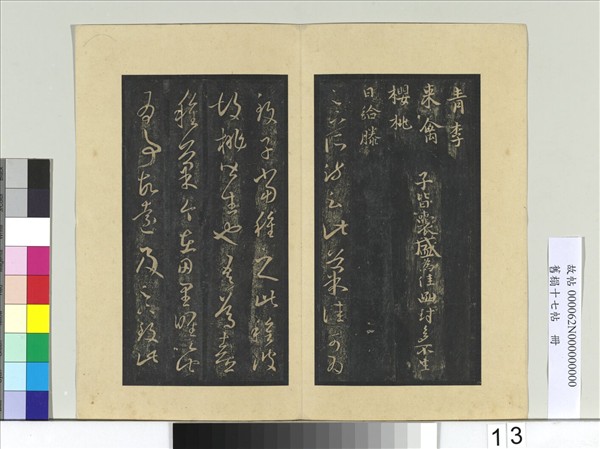 青李
來禽
櫻桃
日給滕
子皆囊盛為佳函封多不生
足下所疏云此菓佳可為
致子當種之此種彼
胡桃皆生也吾篤喜
種菓今在田里唯以此
為事故遠及足下致此
故帖 000062N000000000
舊榻十七帖 冊
13